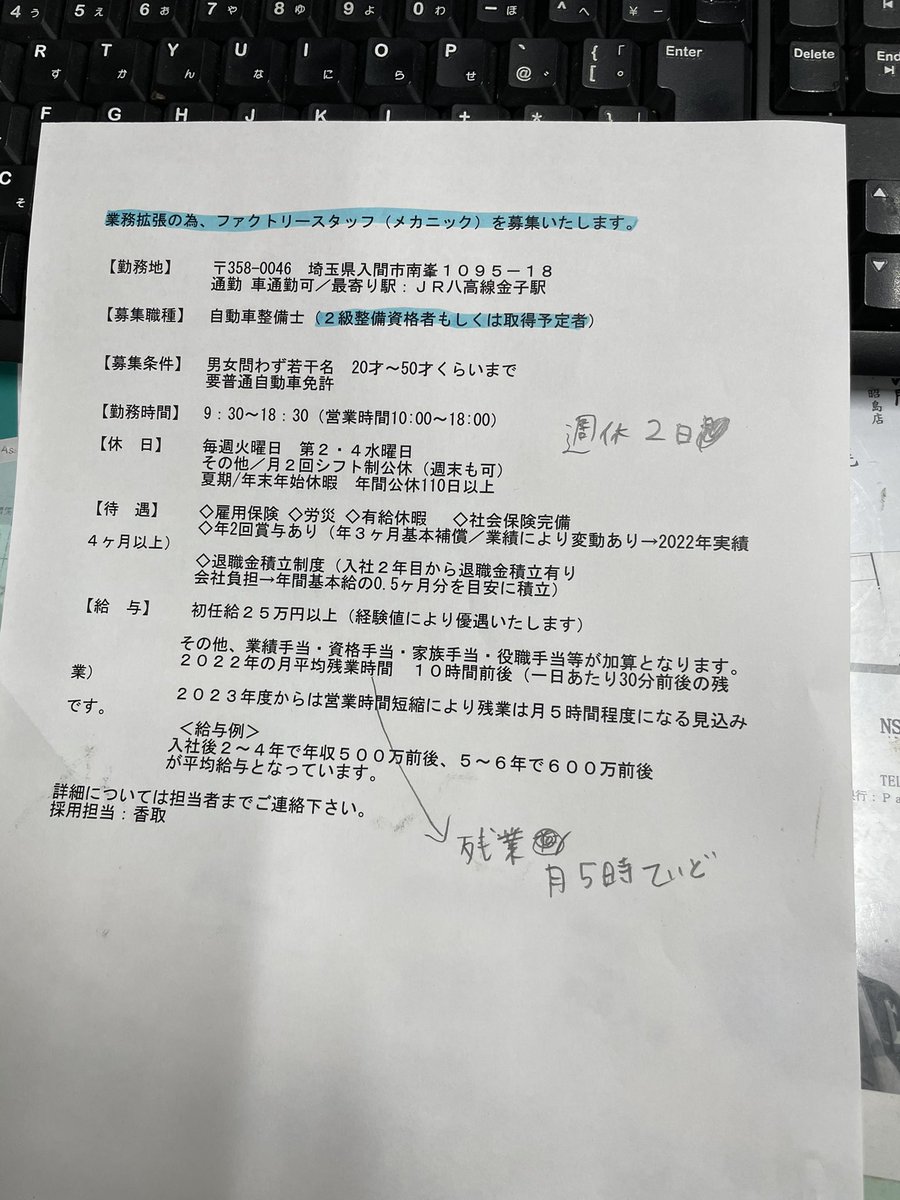 4 う 5 え 6 お 7 や 8 ゆ 9 よ 0 わ － ほ ^ へ ¥ ー
R す T か Y ん U な I に O ら P せ ` @ ゛ { 「 [ ゜ Enter Delete End
F G H J K L + * }
C そ
業務拡張の為、ファクトリースタッフ（メカニック）を募集いたします。
【勤務地】 〒358-0046 埼玉県入間市南峯１０９５－１８
通勤 車通勤可／最寄り駅：ＪＲ八高線金子駅
【募集職種】 自動車整備士（２級整備資格者もしくは取得予定者）
【募集条件】 男女問わず若干名 20才～50才くらいまで
要普通自動車免許
【勤務時間】 9：30～18：30（営業時間10:00～18:00）
週休２日
【休 日】 毎週火曜日 第２・４水曜日
その他／月２回シフト制公休（週末も可）
夏期/年末年始休暇 年間公休110日以上
【待 遇】 ◇雇用保険 ◇労災 ◇有給休暇 ◇社会保険完備
◇年2回賞与あり（年３ヶ月基本補償／業績により変動あり→2022年実績
４ヶ月以上）
◇退職金積立制度（入社２年目から退職金積立有り
会社負担→年間基本給の0.5ヶ月分を目安に積立）
【給 与】 初任給２５万円以上（経験値により優遇いたします）
その他、業績手当・資格手当・家族手当・役職手当等が加算となります。
２０２２年の月平均残業時間 １０時間前後（一日あたり30分前後の残
業）
２０２３年度からは営業時間短縮により残業は月５時間程度になる見込み
です。
＜給与例＞
入社後２～４年で年収５００万前後、５～６年で６００万前後
が平均給与となっています。
詳細については担当者までご連絡下さい。
採用担当：香取
残業
月５時ていど
昭島店
NS
TEL
行：Ｐａ